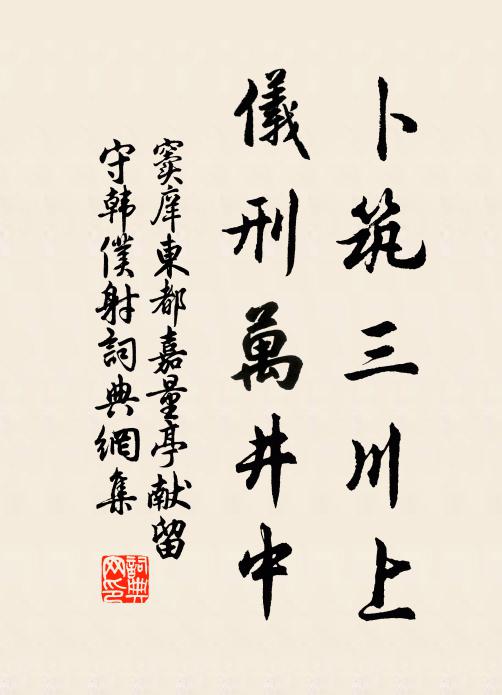 卜筑三川上
儀刑萬井中
窦庠東都嘉量亭献留
守韩僕射詞典網集
詞典
网印